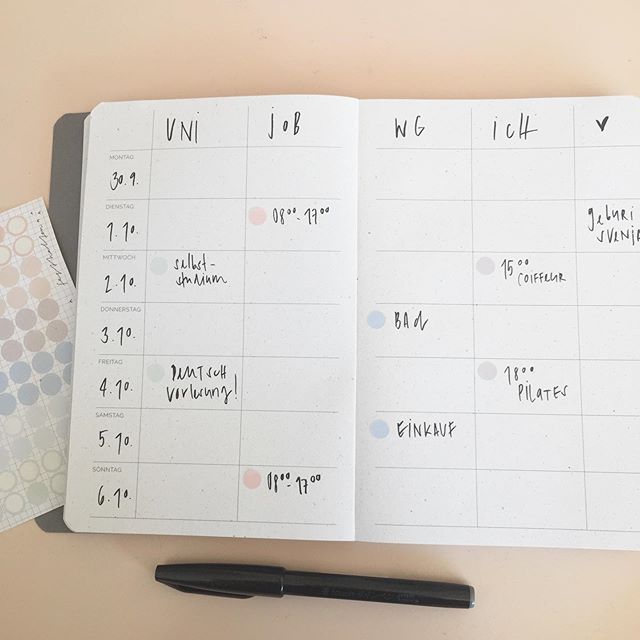 UNI JOB WG ICH ♥
MONTAG
30.9.
DIENSTAG
1.10. 08⁰⁰-17⁰⁰ geburi
svenja
MITTWOCH
2.10. selbst- 15⁰⁰
studium COIFFEUR
DONNERSTAG
3.10. BAd
FREITAG
4.10. DEUTSCH 18⁰⁰
vorlesung! PILATES
SAMSTAG
5.10. EINKAUF
SONNTAG
6.10. 08⁰⁰-17⁰⁰